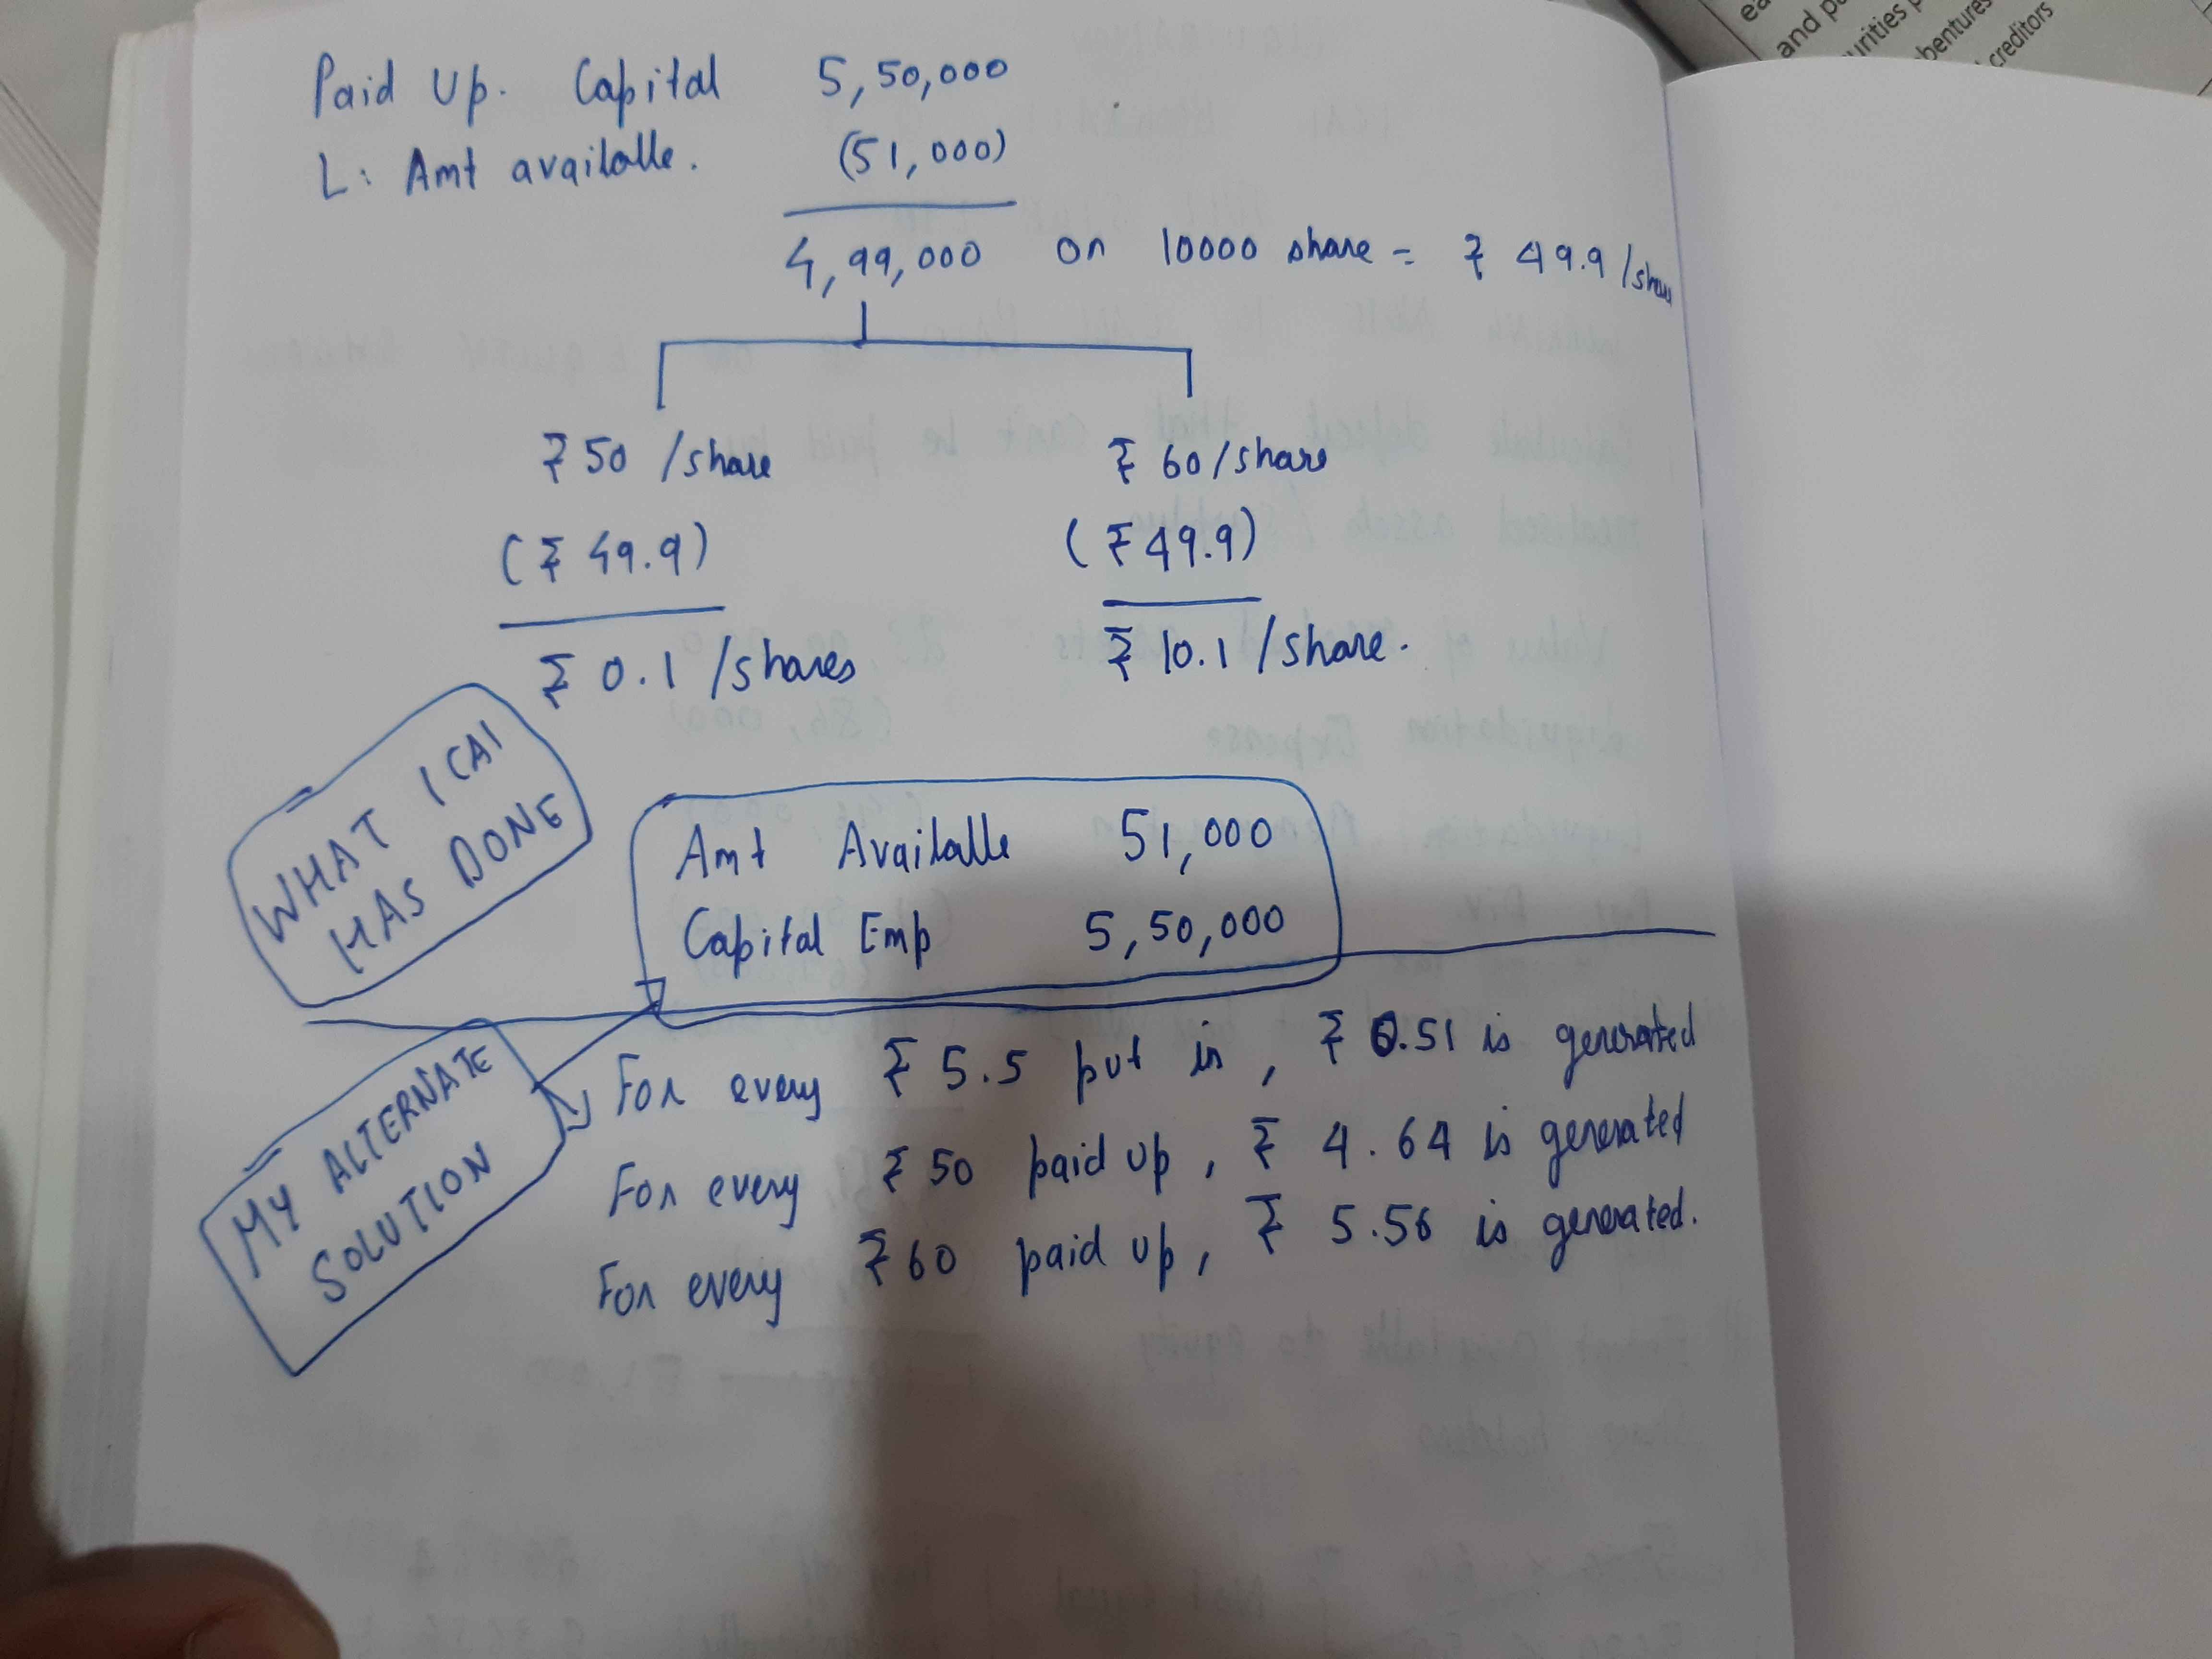 Paid Up. Capital 5,50,000
L: Amt availalle. (51,000)
4,99,000 on 10000 share = ₹ 49.9/share
₹ 50 /share ₹ 60/share
(₹ 49.9) (₹ 49.9)
₹ 0.1 /shares ₹ 10.1 /share.
WHAT ICAI
HAS DONE
Amt Availalle 51,000
Capital Emp 5,50,000
MY ALTERNATE
SOLUTION
For every ₹ 5.5 put in, ₹ 0.51 is generated
For every ₹ 50 paid up, ₹ 4.64 is generated
For every ₹ 60 paid up, ₹ 5.56 is generated.
and
urities
bentures
creditors